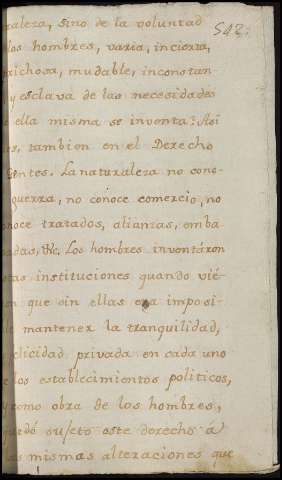 542.
raleza, sino de la voluntad
los hombres, varia, incierta,
richosa, mudable, inconstan-
y esclava de las necesidades
ella misma se inventa? Asi
es, tambien en el Derecho
Gentes. La naturaleza no cono-
guerra, no conoce comercio, no
noce tratados, alianzas, emba
adas, &c. Los hombres inventáron
stas instituciones quando vié-
on que sin ellas era imposi-
mantener la tranquilidad,
felicidad privada en cada uno
los establecimientos politicos,
y como obra de los hombres,
quedó sujeto este derecho á
as mismas alteraciones que